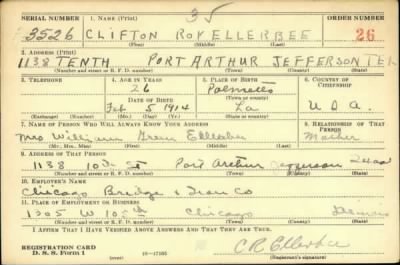 35
SERIAL NUMBER 1. NAME (Print) ORDER NUMBER
3526 CLIFTON ROY ELLERBEE 26
(First) (Middle) (Last)
2. ADDRESS (Print)
1138 TENTH PORT ARTHUR JEFFERSON TEX
(Number and street or R. F. D. number) (Town) (County) (State)
3. TELEPHONE 4. AGE IN YEARS 5. PLACE OF BIRTH 6. COUNTRY OF CITIZENSHIP
26 Palmetto U.S.A.
DATE OF BIRTH (Town or county)
Feb 5 1914 La
(Exchange) (Number) (Mo.) (Day) (Yr.) (State or country)
7. NAME OF PERSON WHO WILL ALWAYS KNOW YOUR ADDRESS 8. RELATIONSHIP OF THAT PERSON
Mrs William Green Ellerbee Mother
(Mr., Mrs., Miss) (First) (Middle) (Last)
9. ADDRESS OF THAT PERSON
1138 10th St Port Arthur Jefferson Texas
(Number and street or R. F. D. number) (Town) (County) (State)
10. EMPLOYER'S NAME
Chicago Bridge & Iron Co
11. PLACE OF EMPLOYMENT OR BUSINESS
1305 W 105th Chicago Illinois
(Number and street or R. F. D. number) (Town) (County) (State)
I AFFIRM THAT I HAVE VERIFIED ABOVE ANSWERS AND THAT THEY ARE TRUE.
REGISTRATION CARD
D. S. S. Form 1 (over) 16—17105 C R Ellerbee
(Registrant's signature)